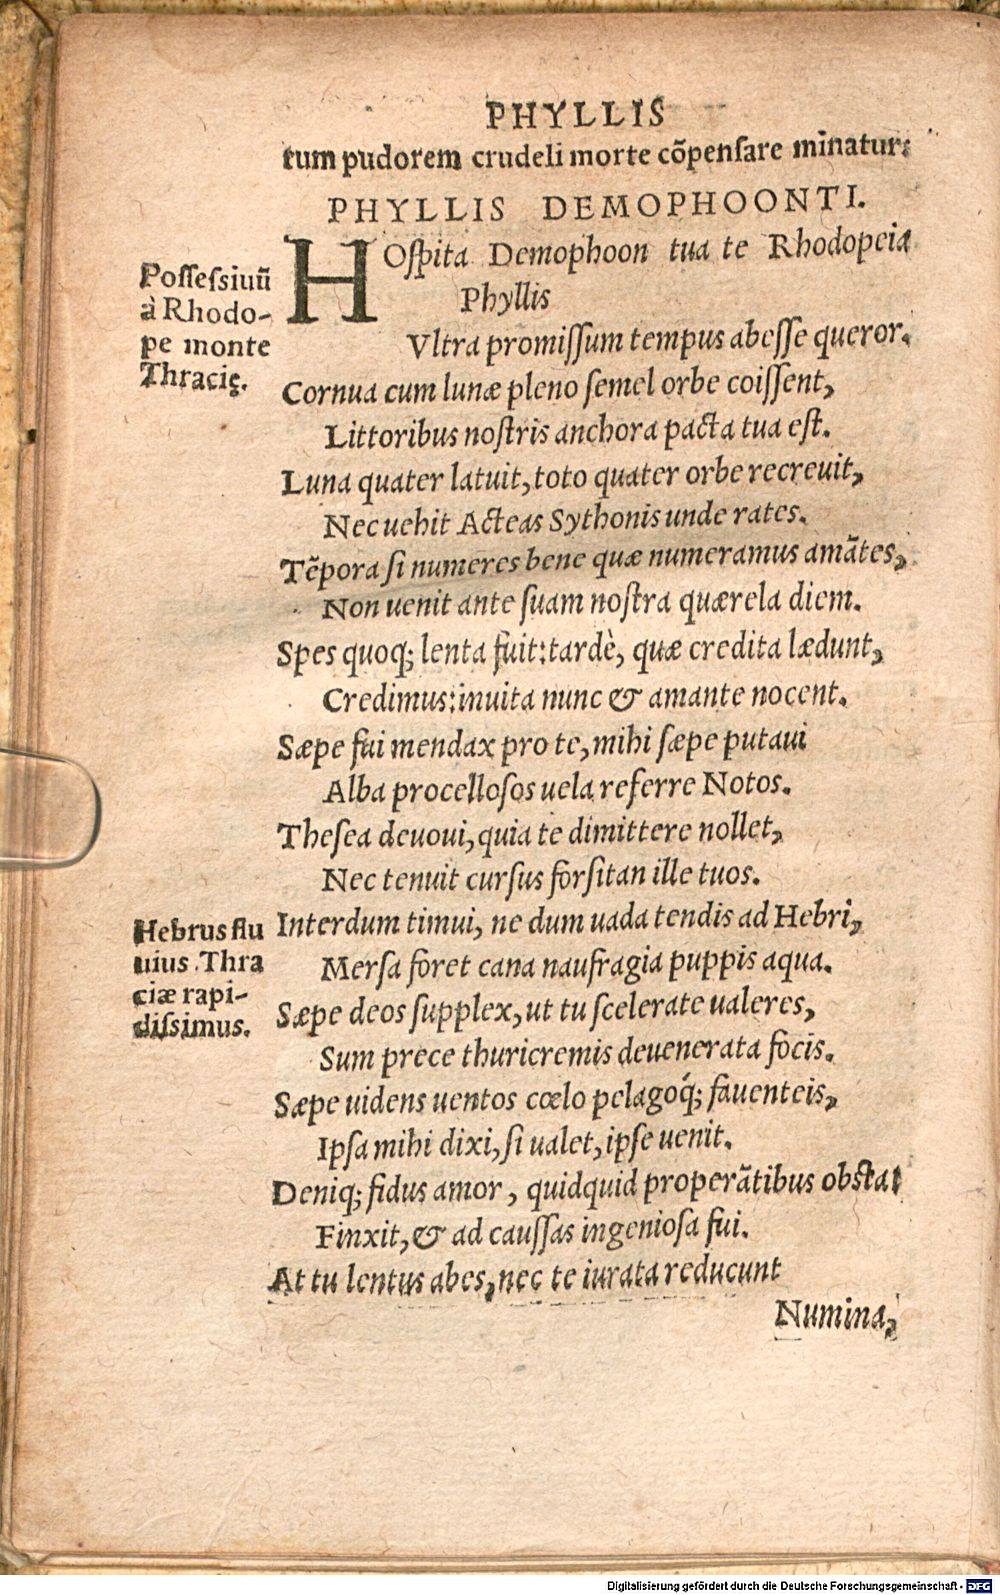 PHYLLIS
tum pudorem crudeli morte cõpensare minatur.
PHYLLIS DEMOPHOONTI.
HOſpita Demophoon tua te Rhodopeia
Phyllis
Vltra promiſſum tempus abeſſe queror.
Possessiuũ
à Rhodo-
pe monte
Thracię.
Cornua cum lunæ pleno ſemel orbe coiſſent,
Littoribus noſtris anchora pacta tua eſt.
Luna quater latuit, toto quater orbe recreuit,
Nec uehit Acteas Sythonis unde rates.
Tẽpora ſi numeres bene quæ numeramus amãtes,
Non uenit ante ſuam noſtra quærela diem.
Spes quoq; lenta fuit: tardè, quæ credita lædunt,
Credimus: inuita nunc & amante nocent.
Sæpe fui mendax pro te, mihi ſæpe putaui
Alba procelloſos uela referre Notos.
Theſea deuoui, quia te dimittere nollet,
Nec tenuit curſus forſitan ille tuos.
Interdum timui, ne dum uada tendis ad Hebri,
Merſa foret cana naufragia puppis aqua.
Hebrus flu
uius Thra
ciæ rapi-
diſsimus.
Sæpe deos ſupplex, ut tu ſcelerate ualeres,
Sum prece thuricremis deuenerata focis.
Sæpe uidens uentos cœlo pelagoq́; fauenteis,
Ipſa mihi dixi, ſi ualet, ipſe uenit.
Deniq; fidus amor, quidquid properãtibus obſtat
Finxit, & ad cauſſas ingenioſa fui.
At tu lentus abes, nec te iurata reducunt
Numina,
Digitalisierung gefördert durch die Deutsche Forschungsgemeinschaft - DFG